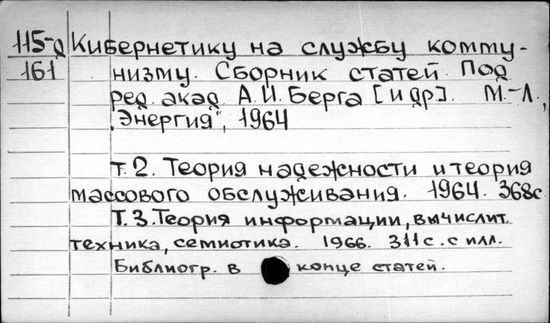 115-д Кибернетику на службу комму-
161 низму. Сборник статей. Под
ред. акад. А.И. Берга [и др]. М.-Л.,
"Энергия", 1964
т. 2. Теория надежности и теория
массового обслуживания. 1964. 368с.
Т. 3. Теория информации, вычислит.
техника, семиотика. 1966. 311с. с илл.
Библиогр. в конце статей.